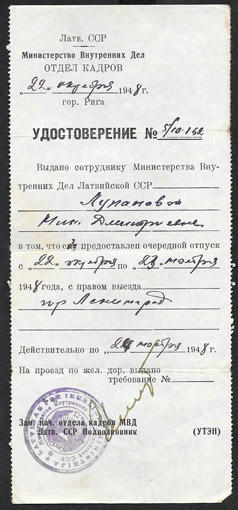 Латв. ССР
Министерство Внутренних Дел
ОТДЕЛ КАДРОВ
„22" октября 1948 г.
гор. Рига
УДОСТОВЕРЕНИЕ №
Выдано сотруднику Министерства Вну-
тренних Дел Латвийской ССР
Лупановой
Дмитриевне
в том, что ей предоставлен очередной отпуск
с 22 октября по 23 ноября
1948 года, с правом выезда
гор Ленинград
Действительно по „24" ноября 1948 г.
На проезд по жел. дор. выдано
требование №
Зам. нач. отдела кадров МВД
Латв. ССР Подполковник (УТЭН)